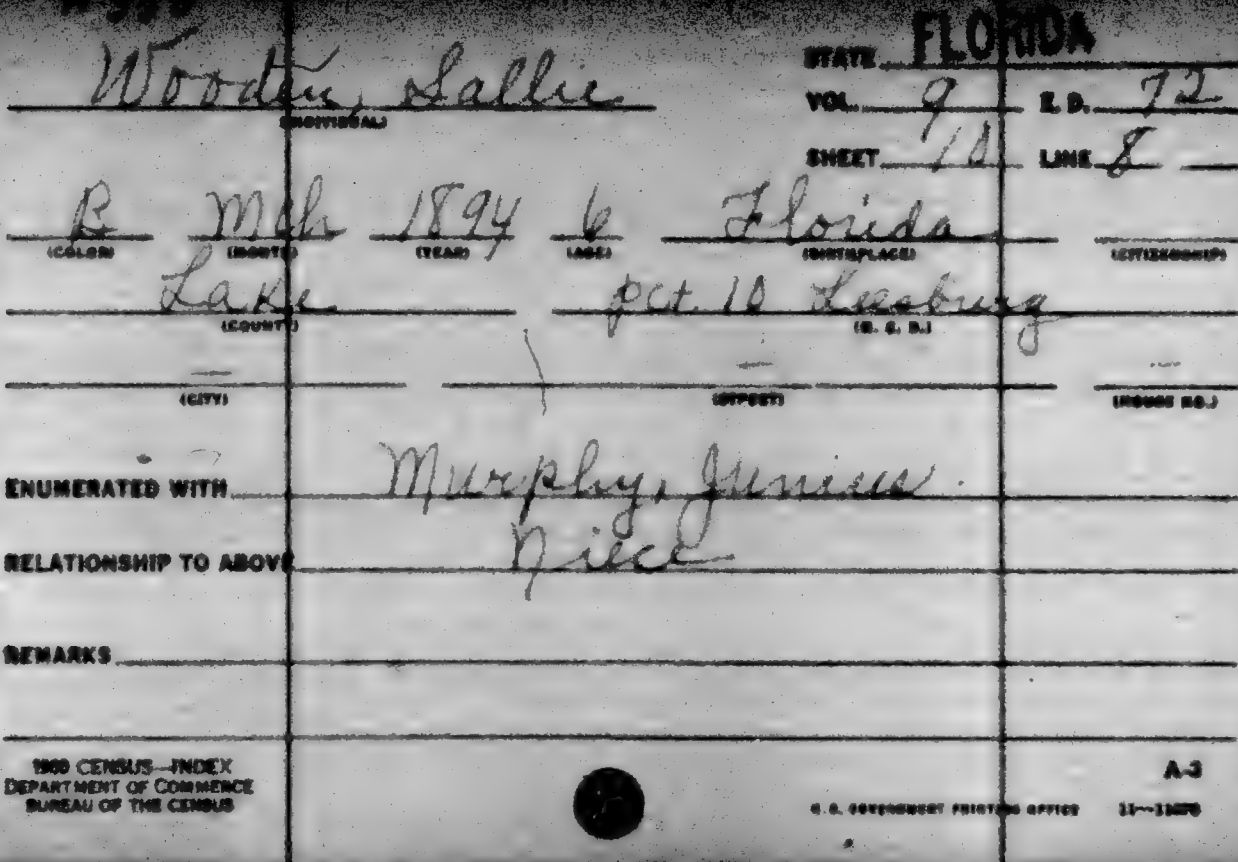 Wooden, Sallie
(INDIVIDUAL)
STATE FLORIDA
VOL. 9 E. D. 72
SHEET 10 LINE 8
B Mch 1894 6 Florida
(COLOR) (MONTH) (YEAR) (AGE) (BIRTHPLACE) (CITIZENSHIP)
Lake pct. 10 Leesburg
(COUNTY) (M. C. D.)
— — —
(CITY) (STREET) (HOUSE NO.)
ENUMERATED WITH Murphy, Junius
RELATIONSHIP TO ABOVE Niece
REMARKS
1900 CENSUS—INDEX
DEPARTMENT OF COMMERCE
BUREAU OF THE CENSUS
A-3
U.S. GOVERNMENT PRINTING OFFICE